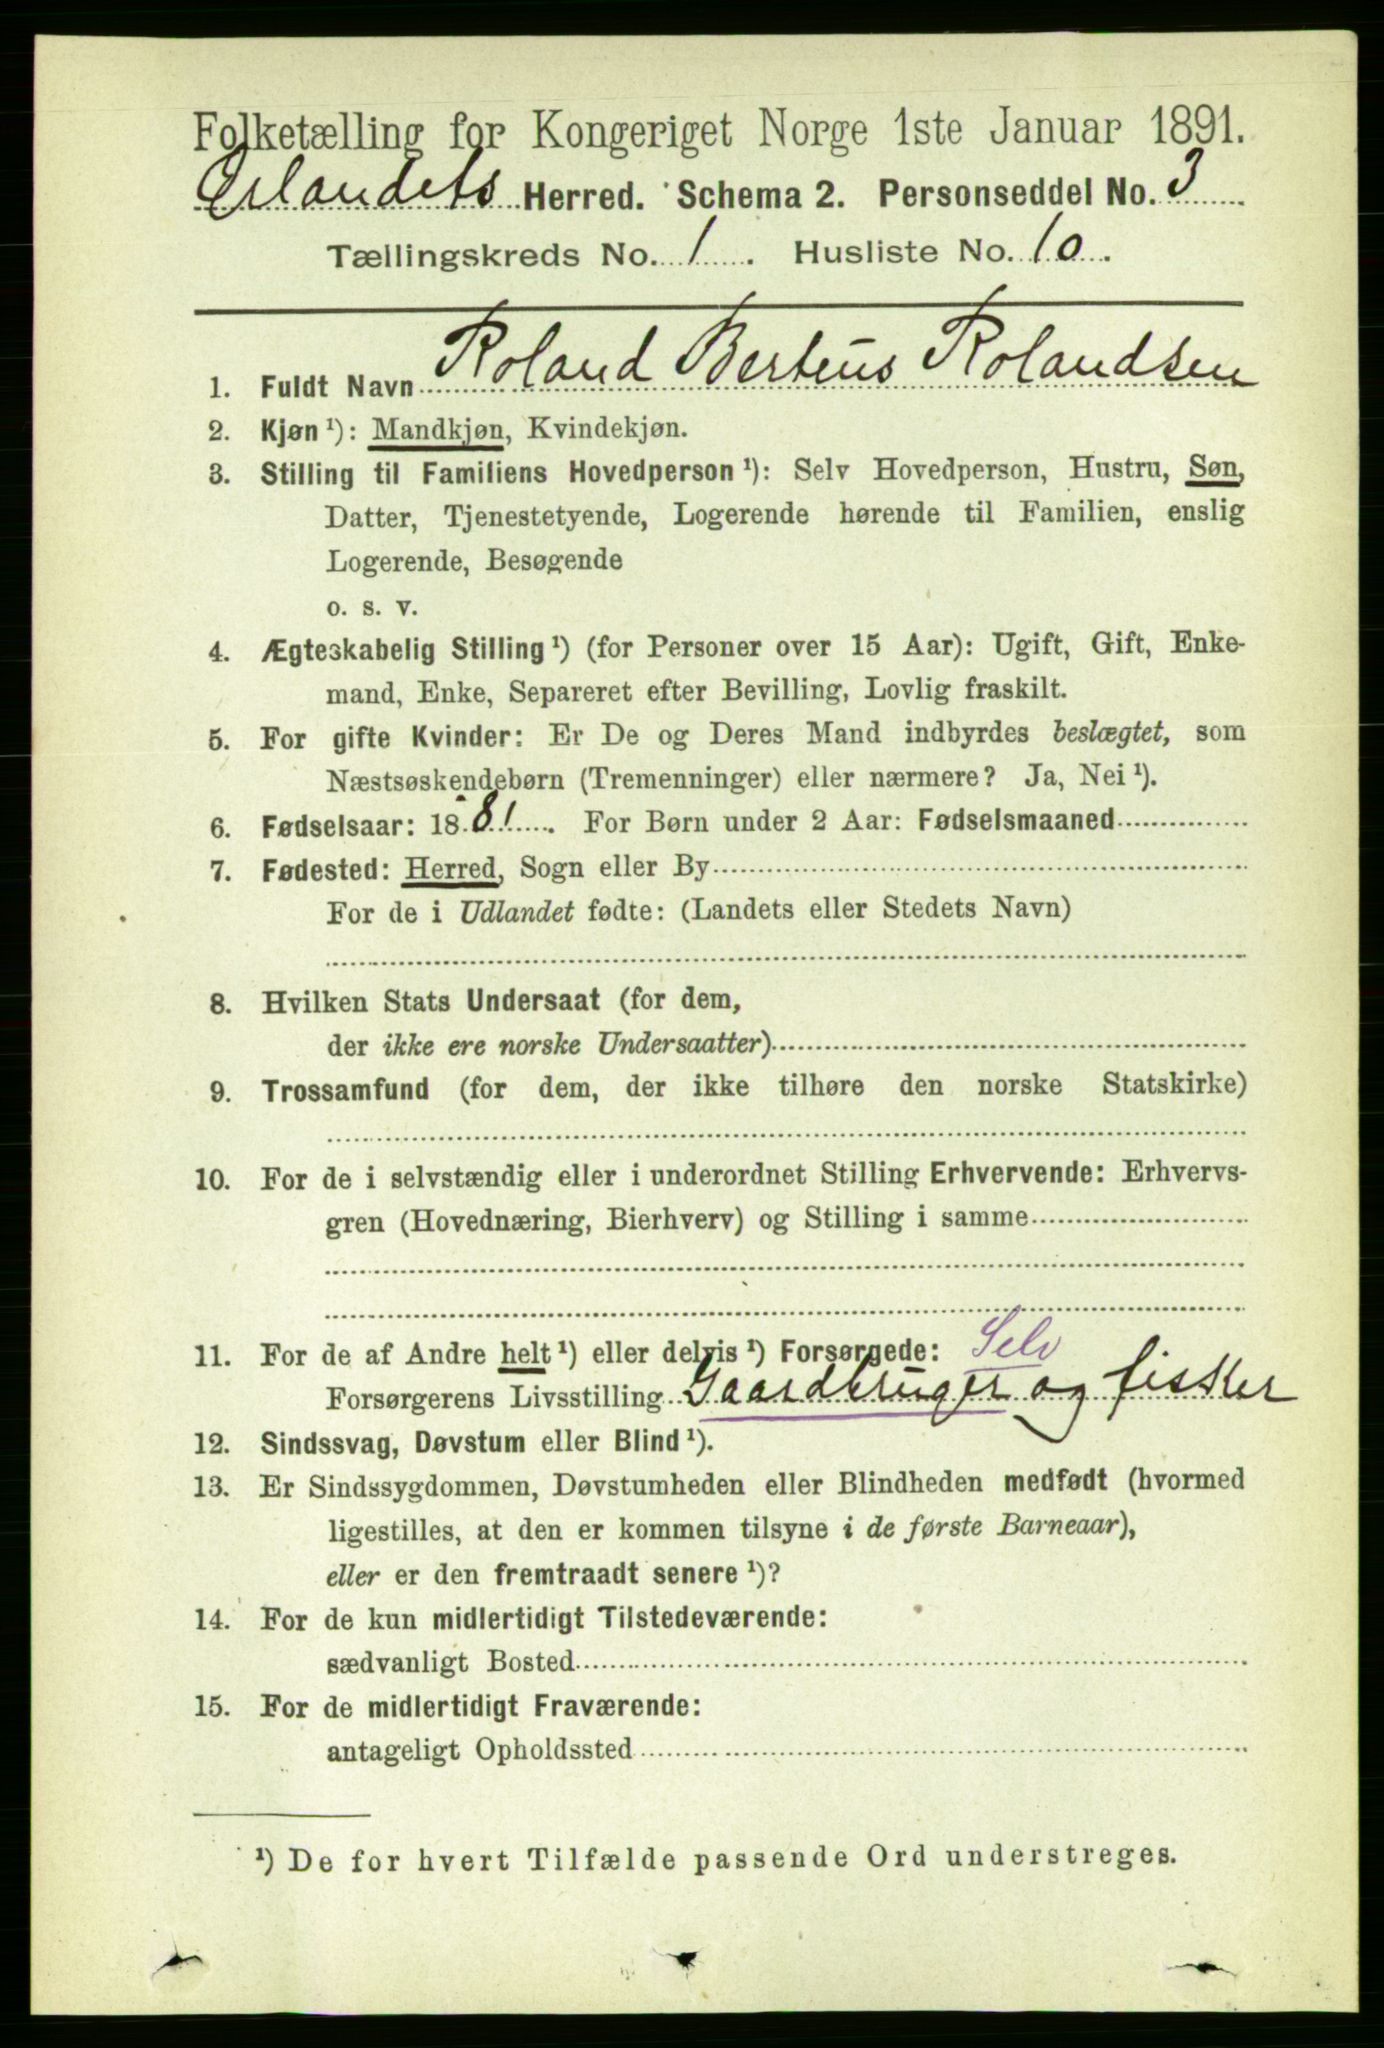 Folketælling for Kongeriget Norge 1ste Januar 1891.
Ørlandets Herred. Schema 2. Personseddel No. 3
Tællingskreds No. 1. Husliste No. 10.
1. Fuldt Navn Roland Berteus Rolandsen
2. Kjøn ¹): Mandkjøn, Kvindekjøn.
3. Stilling til Familiens Hovedperson ¹): Selv Hovedperson, Hustru, Søn,
Datter, Tjenestetyende, Logerende hørende til Familien, enslig
Logerende, Besøgende
o. s. v.
4. Ægteskabelig Stilling ¹) (for Personer over 15 Aar): Ugift, Gift, Enke-
mand, Enke, Separeret efter Bevilling, Lovlig fraskilt.
5. For gifte Kvinder: Er De og Deres Mand indbyrdes beslægtet, som
Næstsøskendebørn (Tremenninger) eller nærmere? Ja, Nei ¹).
6. Fødselsaar: 1881. For Børn under 2 Aar: Fødselsmaaned
7. Fødested: Herred, Sogn eller By
For de i Udlandet fødte: (Landets eller Stedets Navn)
8. Hvilken Stats Undersaat (for dem,
der ikke ere norske Undersaatter)
9. Trossamfund (for dem, der ikke tilhøre den norske Statskirke)
10. For de i selvstændig eller i underordnet Stilling Erhvervende: Erhvervs-
gren (Hovednæring, Bierhverv) og Stilling i samme
11. For de af Andre helt ¹) eller delvis ¹) Forsørgede: Selv
Forsørgerens Livsstilling Gaardbruger og fisker
12. Sindssvag, Døvstum eller Blind ¹).
13. Er Sindssygdommen, Døvstumheden eller Blindheden medfødt (hvormed
ligestilles, at den er kommen tilsyne i de første Barneaar),
eller er den fremtraadt senere ¹)?
14. For de kun midlertidigt Tilstedeværende:
sædvanligt Bosted
15. For de midlertidigt Fraværende:
antageligt Opholdssted
¹) De for hvert Tilfælde passende Ord understreges.